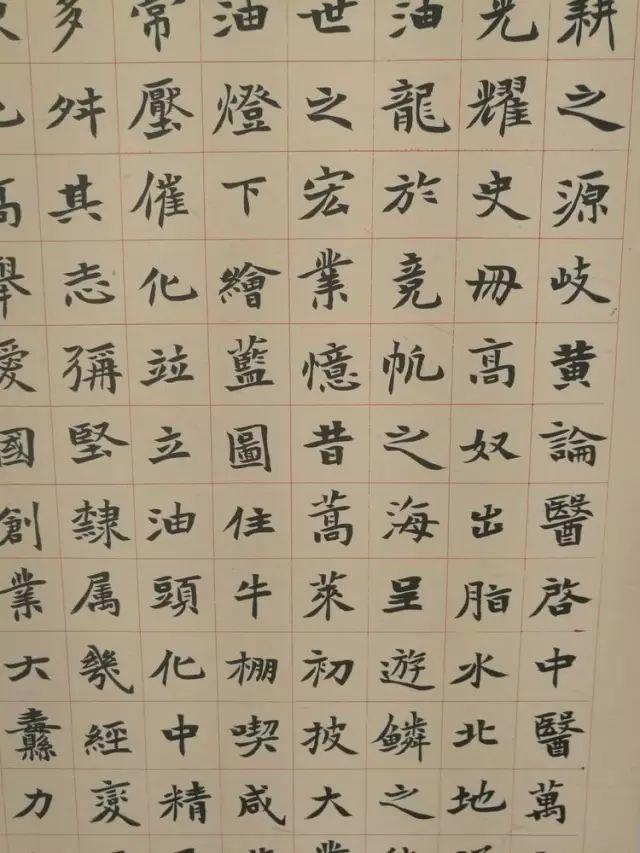 耕之源岐黄論醫啓中醫萬
光耀史冊高奴出脂水北地
油龍於竞帆之海呈遊鳞之
世之宏業憶昔蒿萊初披大
油燈下繪藍圖住牛棚喫咸
常壓催化並立油頭化中精
多舛其志彌堅隸属幾經變
高舉愛國創業大纛力